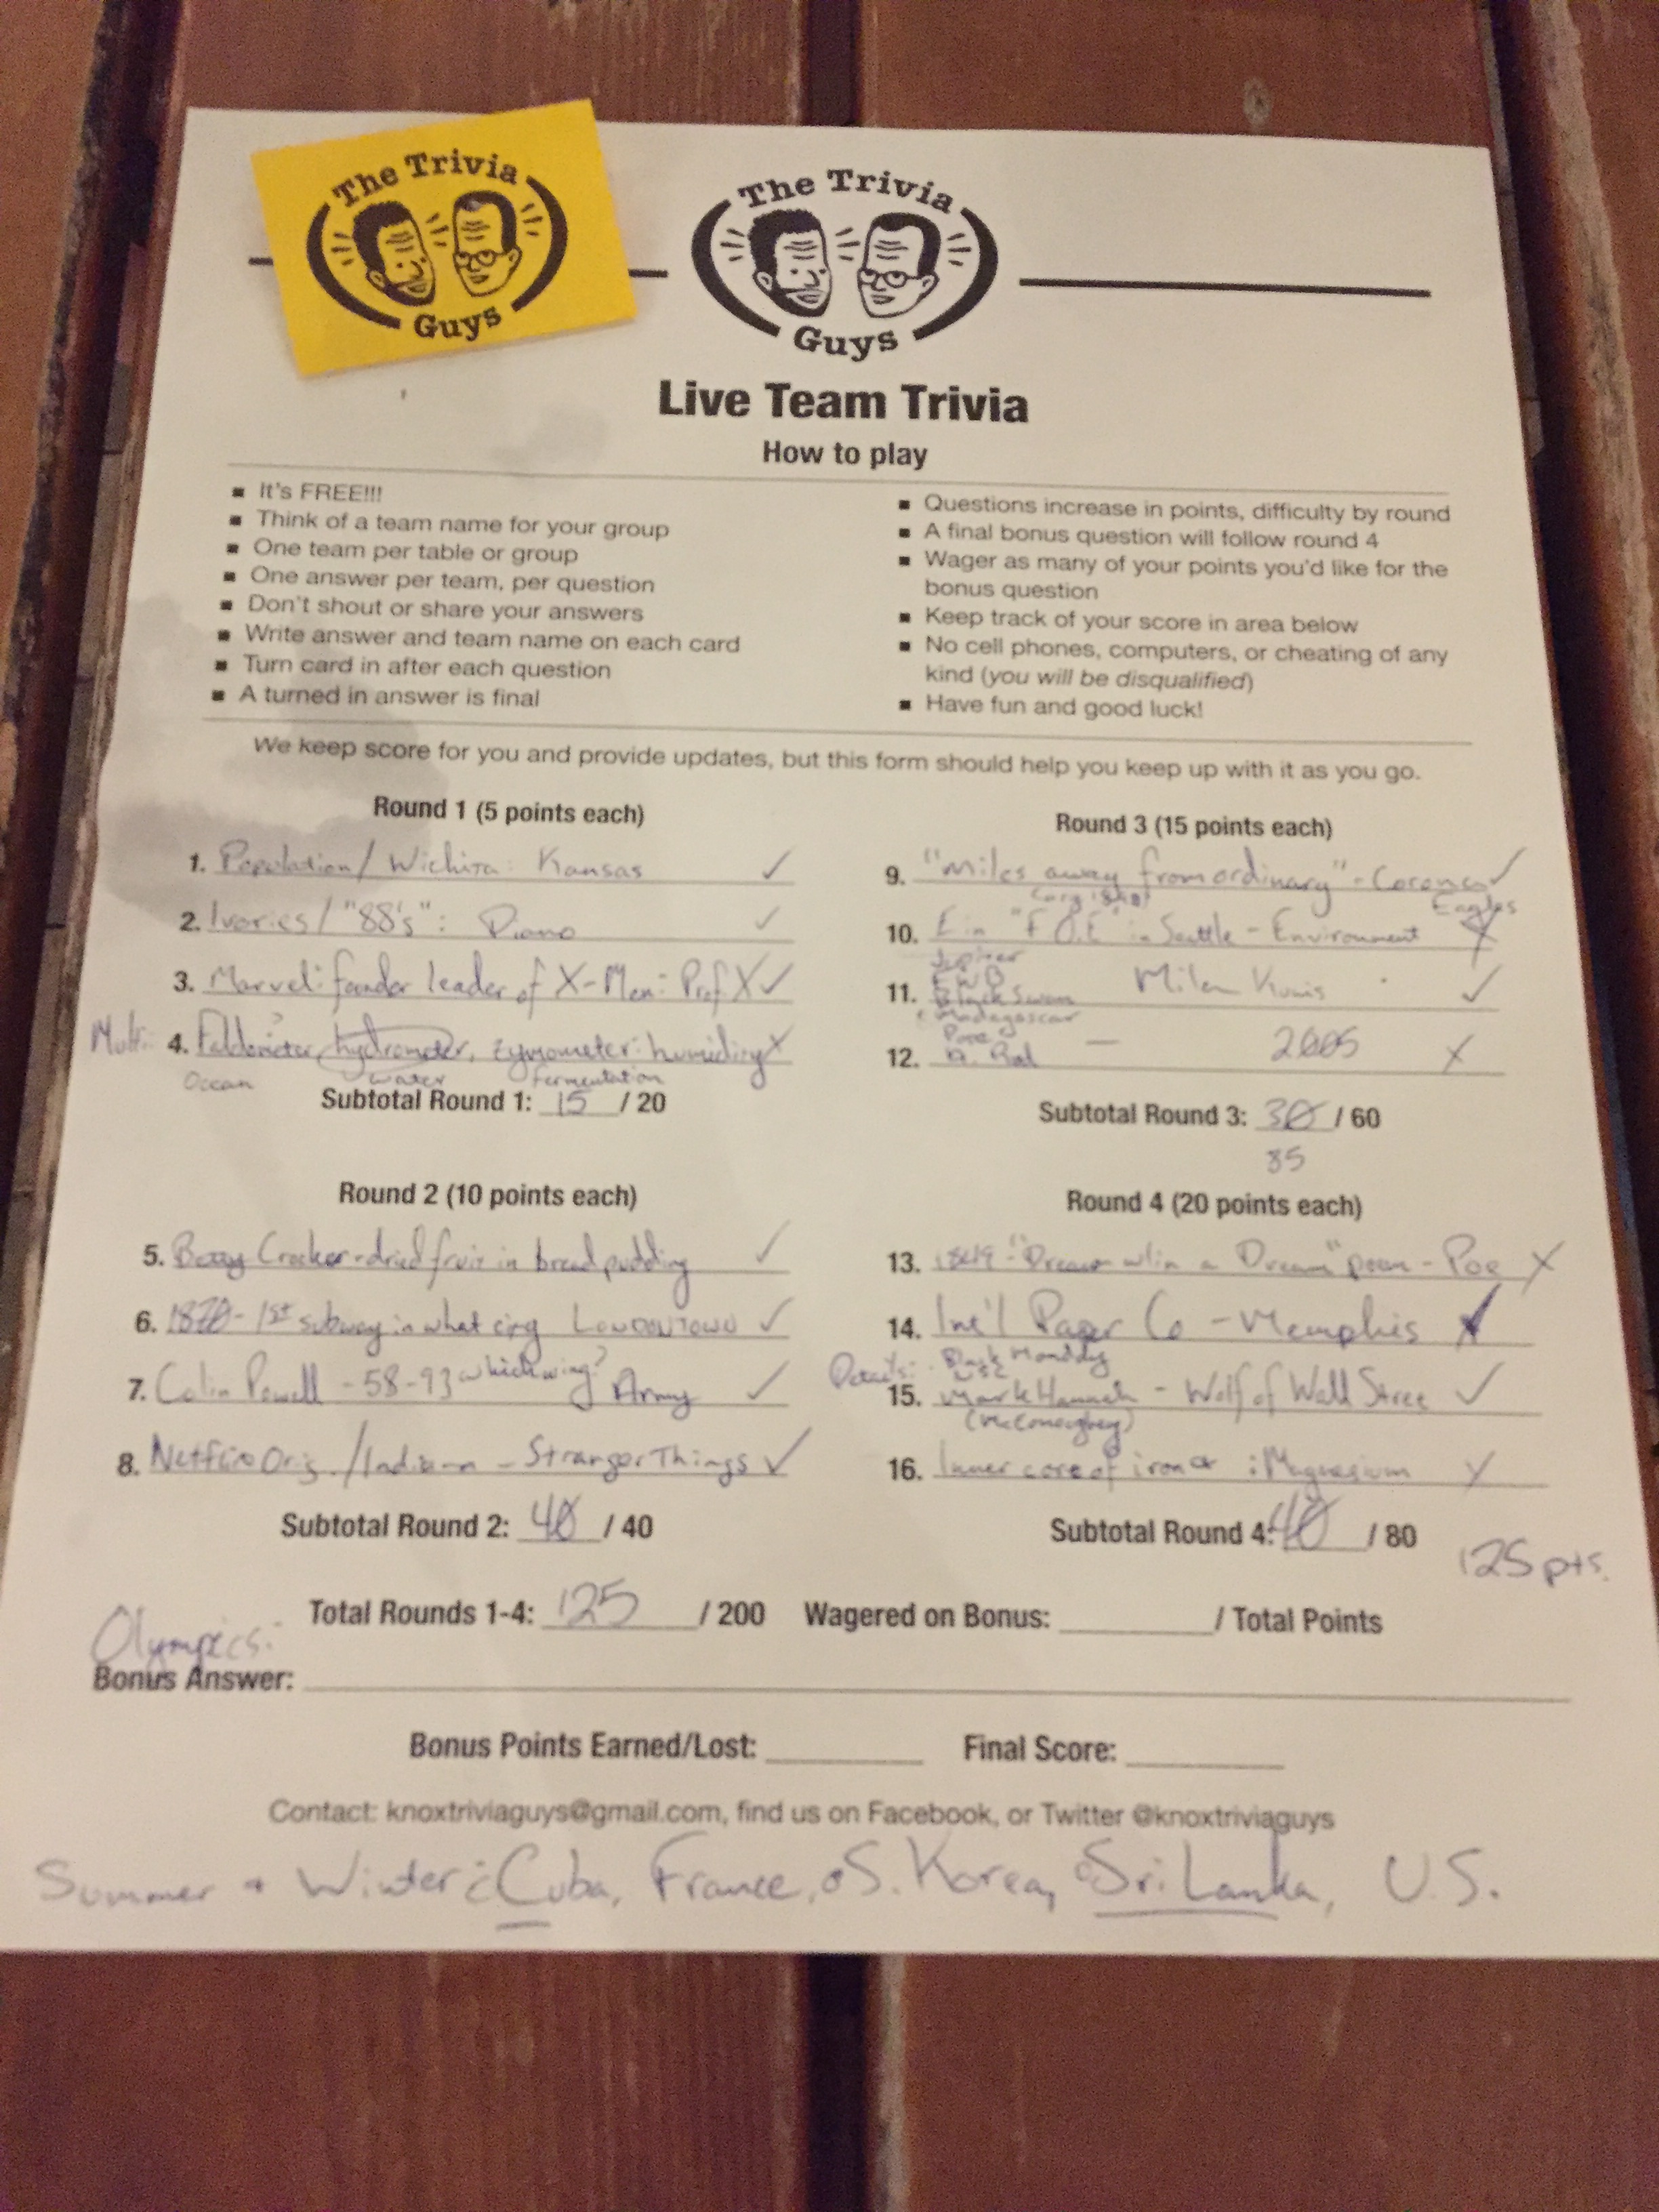 The Trivia
Guys
The Trivia
Guys
Live Team Trivia
How to play
▪ It's FREE!!!
▪ Think of a team name for your group
▪ One team per table or group
▪ One answer per team, per question
▪ Don't shout or share your answers
▪ Write answer and team name on each card
▪ Turn card in after each question
▪ A turned in answer is final
▪ Questions increase in points, difficulty by round
▪ A final bonus question will follow round 4
▪ Wager as many of your points you'd like for the
bonus question
▪ Keep track of your score in area below
▪ No cell phones, computers, or cheating of any
kind (you will be disqualified)
▪ Have fun and good luck!
We keep score for you and provide updates, but this form should help you keep up with it as you go.
Round 1 (5 points each)
1. Population / Wichita: Kansas ✓
2. Ivories / "88's": Piano ✓
3. Marvel: founder leader of X-Men: Prof X ✓
4. hydrometer, zymometer: humidity X
Ocean water fermentation
Subtotal Round 1: 15 / 20
Round 2 (10 points each)
5. Betty Crocker - dried fruit in bread pudding ✓
6. - 1st subway in what city ✓
7. Colin Powell - 58-93 which wing? Army ✓
8. Netflix Orig. / Indiana - Stranger Things ✓
Subtotal Round 2: 40 / 40
Round 3 (15 points each)
9. "Miles away from ordinary" - Corona ✓
Eagles
10. E in "F.O.E" in Seattle - Environment X
Jupiter
11. Black Swan Mila Kunis ✓
Madagascar
12. Rat — 2005 X
Subtotal Round 3: 30 / 60
85
Round 4 (20 points each)
13. 1849 - "Dream w/in a Dream" poem - Poe X
14. Int'l Paper Co - Memphis
Black Monday
15. Mark Hanna - Wolf of Wall Street ✓
(McConaughey)
16. Inner core of iron & : Magnesium X
Subtotal Round 4: 40 / 80
125 pts.
Total Rounds 1-4: 125 / 200 Wagered on Bonus: / Total Points
Olympics:
Bonus Answer:
Bonus Points Earned/Lost: Final Score:
Contact: knoxtriviaguys@gmail.com, find us on Facebook, or Twitter @knoxtriviaguys
Summer + Winter: Cuba, France, S. Korea, Sri Lanka, U.S.